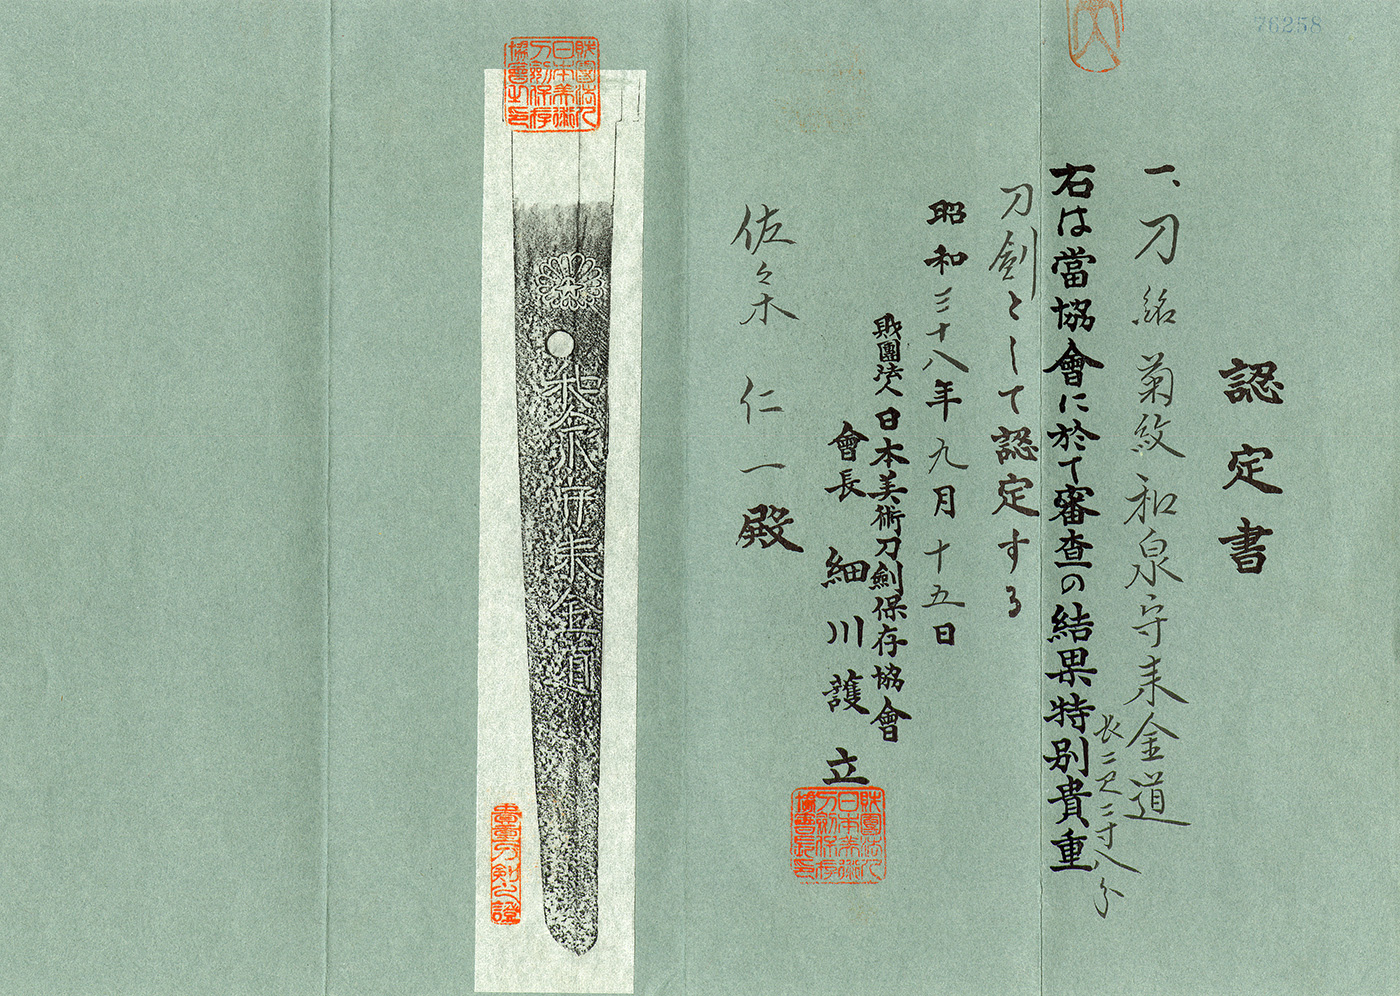 76258
認定書
一、刀 銘 菊紋 和泉守来金道
長二尺二寸八分
右は當協會に於て審査の結果特別貴重
刀劍として認定する
昭和三十八年九月十五日
財團法人日本美術刀劍保存協會
會長 細川護立
佐々木 仁一殿
財團法人
日本美術
刀劍保存
協會長印
財團法人
日本美術
刀劍保存
協會之印
和泉守来金道
貴重刀剣之證